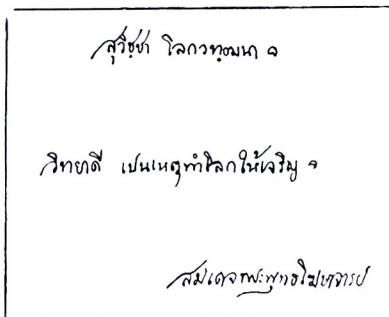 สุวิชฺชา โลกวฑฺฒนา ๑
วิทยาดี เป็นเหตุทำโลกให้เจริญ ๑
สมเด็จพระพุทธโฆษาจารย์